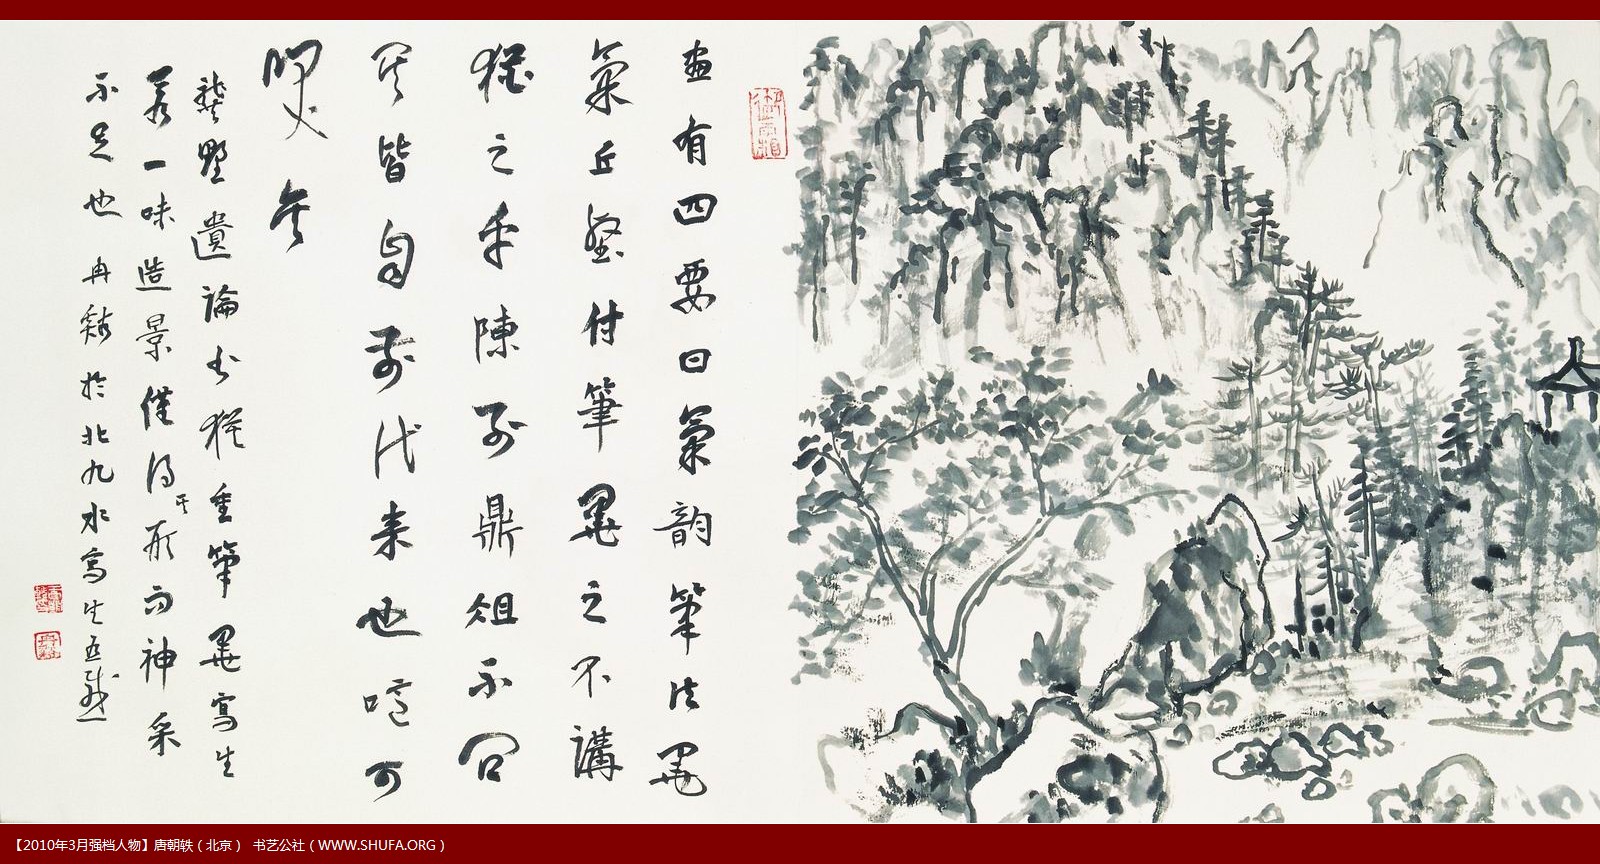 畫有四要曰氣韵筆法墨
氣丘壑付筆墨之不講
猶之乎陳列鼎俎不問
其皆自前代来也可
嘆矣
龔野遺論猶重筆墨寫生
若一味造景僅得其形而神采
不足也 冉谿於北九水寫生並識
【2010年3月强档人物】唐朝轶（北京） 书艺公社（WWW.SHUFA.ORG）